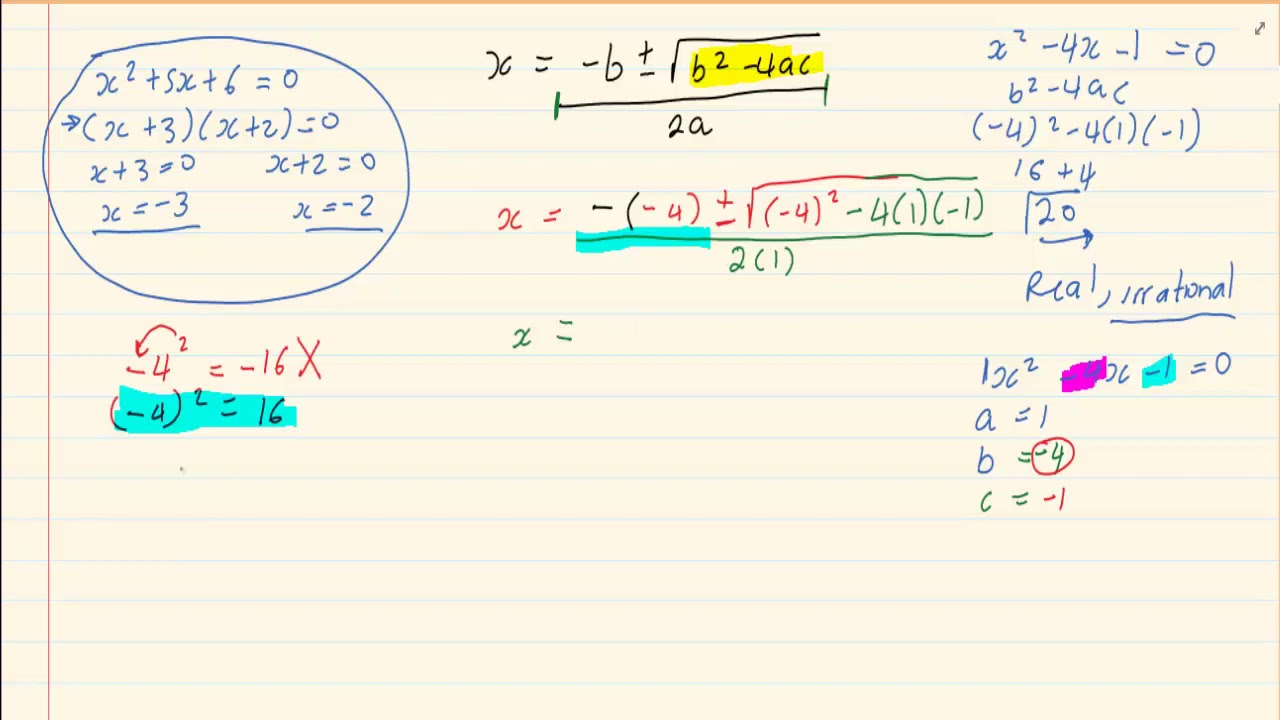 x² + 5x + 6 = 0
(x + 3)(x + 2) = 0
x + 3 = 0    x + 2 = 0
x = -3    x = -2
-4² = -16 X
(-4)² = 16
x = -b ± √b² - 4ac
2a
x = -(-4) ± √(-4)² - 4(1)(-1)
2(1)
x =
x² - 4x - 1 = 0
b² - 4ac
(-4)² - 4(1)(-1)
16 + 4
√20
Real, irrational
1x² - 4x - 1 = 0
a = 1
b = -4
c = -1